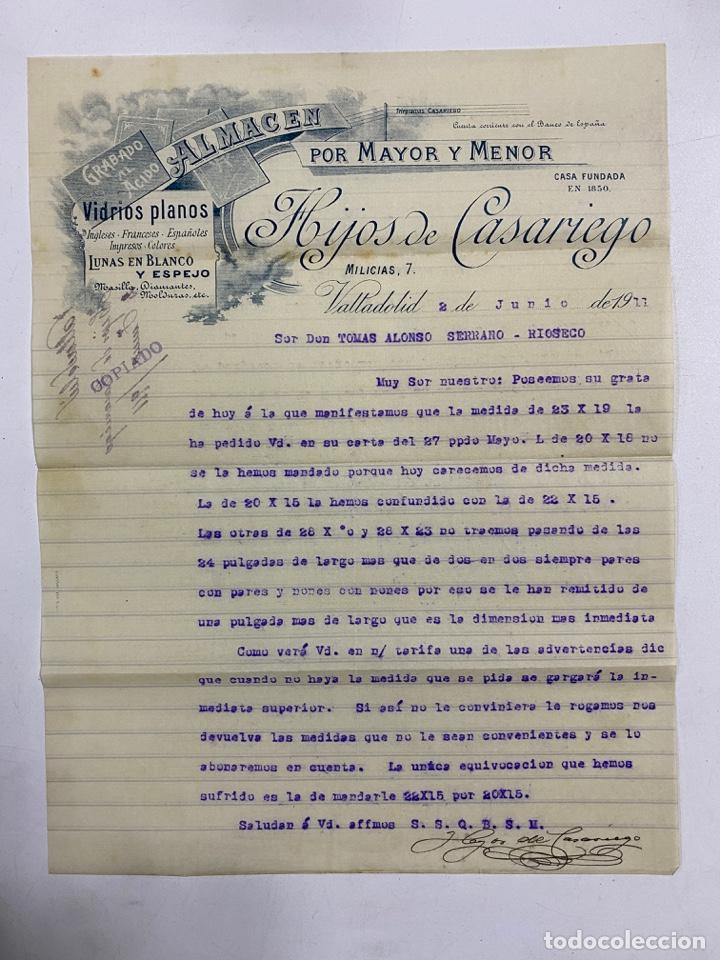 GRABADO
AL
ACIDO
ALMACEN
Telegramas CASARIEGO
Cuenta corriente con el Banco de España
POR MAYOR Y MENOR
CASA FUNDADA
EN 1850.
Vidrios planos
Ingleses - Franceses - Españoles
Impresos - Colores
LUNAS EN BLANCO
Y ESPEJO
Masilla, Diamantes,
Molduras, etc.
Hijos de Casariego
MILICIAS, 7.
Valladolid 2 de Junio de 1911
COPIADO
Sor Don TOMAS ALONSO SERRANO - RIOSECO
Muy Sor nuestro: Poseemos su grata
de hoy á la que manifestamos que la medida de 23 X 19 la
ha pedido Vd. en su carta del 27 ppdo Mayo. L de 20 X 18 no
se la hemos mandado porque hoy carecemos de dicha medida.
La de 20 X 15 la hemos confundido con la de 22 X 15 .
Las otras de 28 X °o y 28 X 23 no traemos pasando de las
24 pulgadas de largo mas que de dos en dos siempre pares
con pares y nones con nones por eso se le han remitido de
una pulgada mas de largo que es la dimension mas inmediata
Como verá Vd. en n/ tarifa una de las advertencias dic
que cuando no haya la medida que se pida se gargará la in-
mediata superior. Si así no le conviniera le rogamos nos
devuelva las medidas que no le sean convenientes y se lo
abonaremos en cuenta. La unica equivocacion que hemos
sufrido es la de mandarle 22X15 por 20X15.
Saludan á Vd. affmos S. S. Q. B. S. M.
Hijos de Casariego
todocoleccion.net